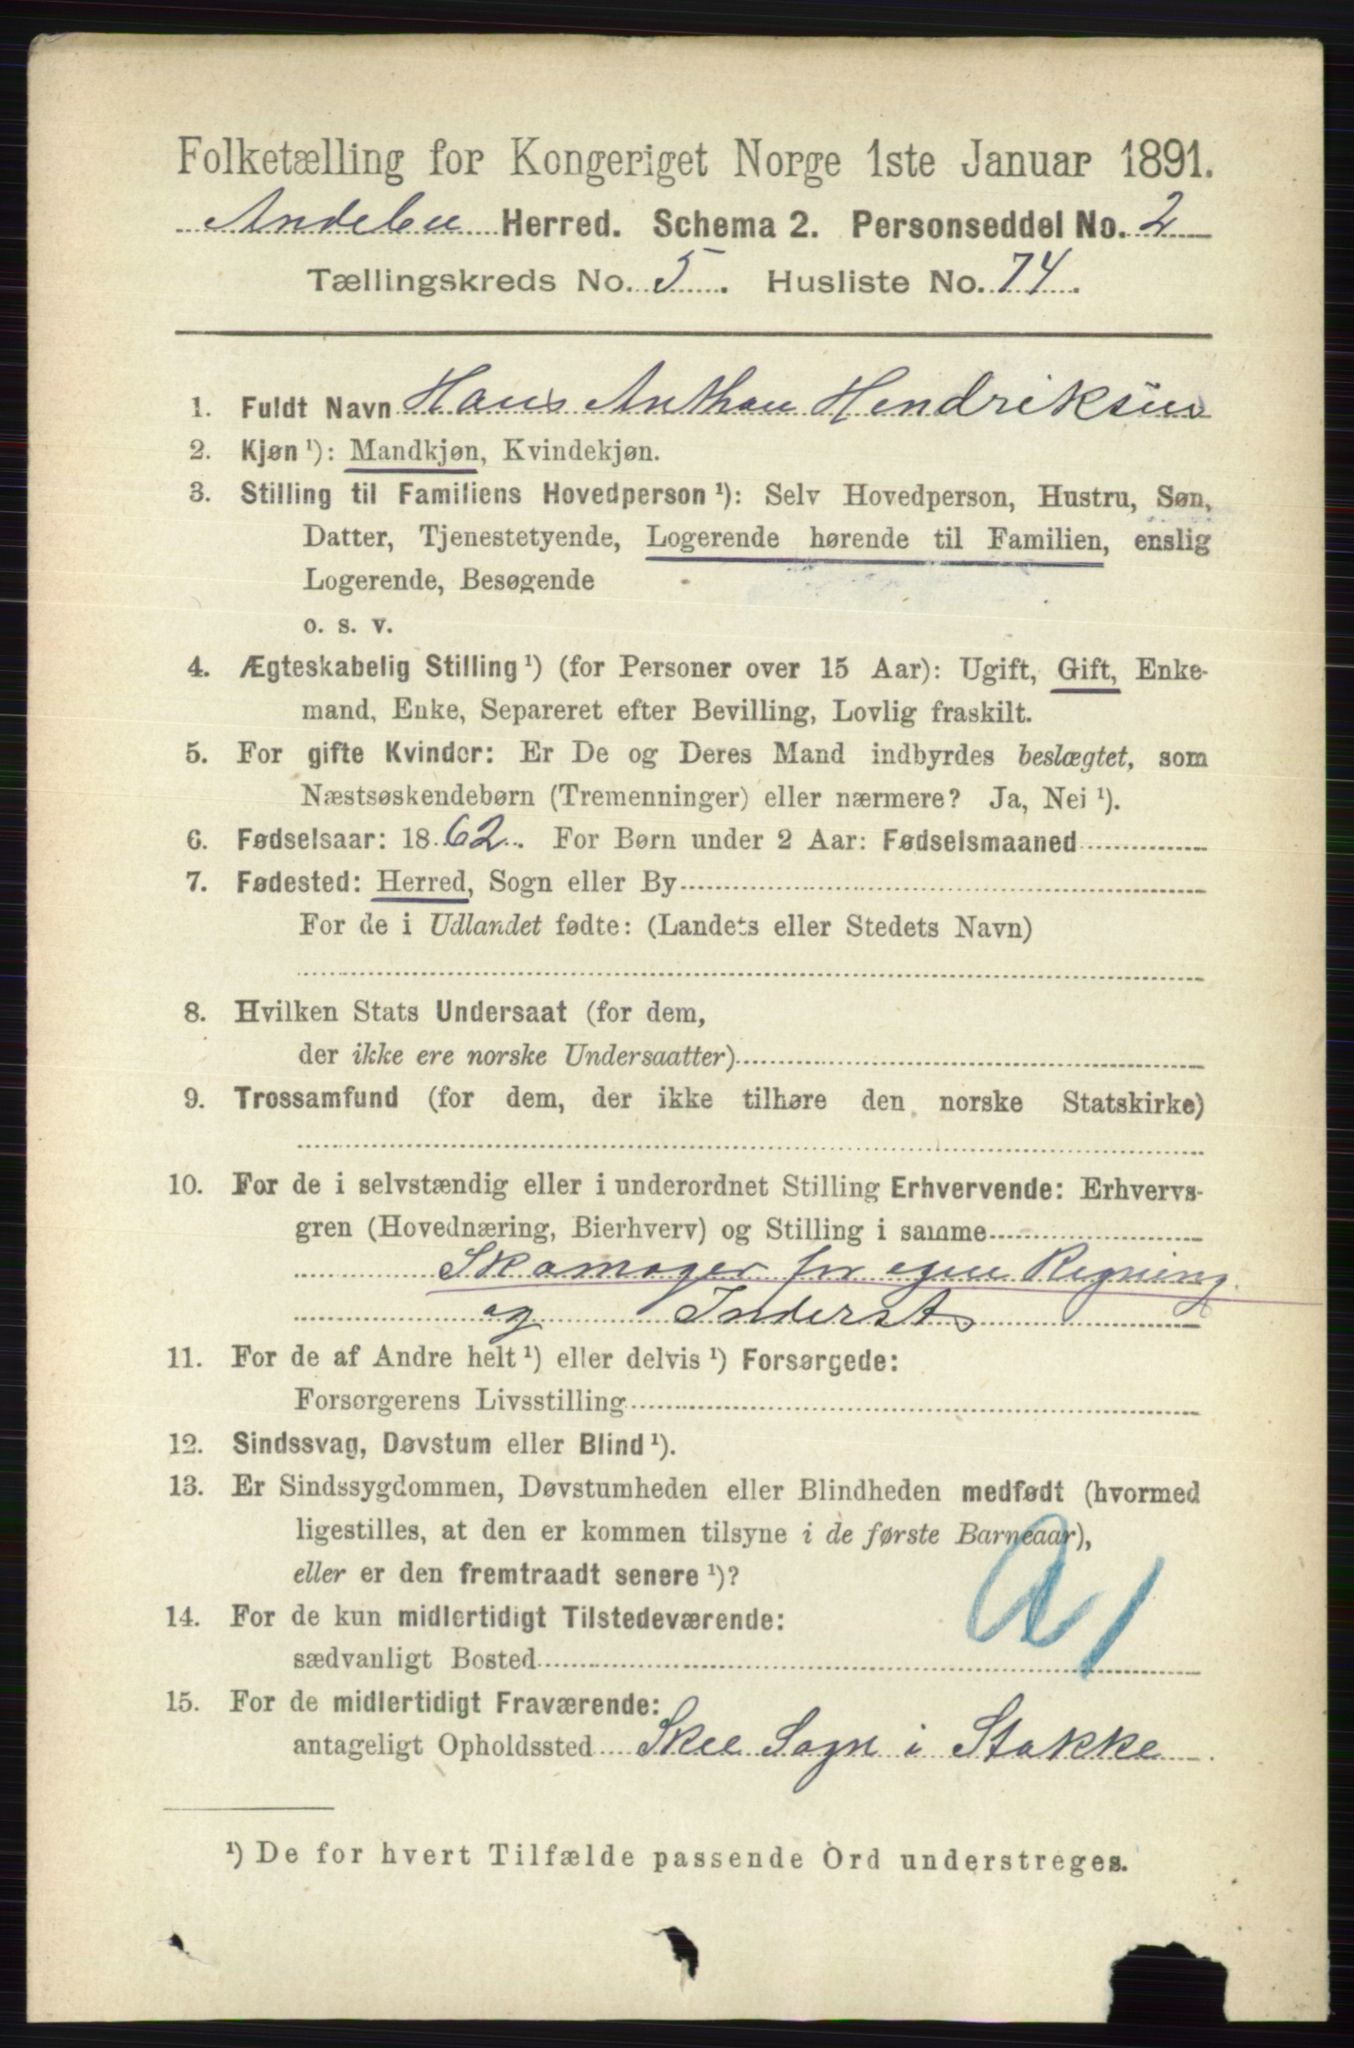 Folketælling for Kongeriget Norge 1ste Januar 1891.
Andebu Herred. Schema 2. Personseddel No. 2
Tællingskreds No. 5. Husliste No. 74.
1. Fuldt Navn Hans Anthon Hendriksen
2. Kjøn ¹): Mandkjøn, Kvindekjøn.
3. Stilling til Familiens Hovedperson ¹): Selv Hovedperson, Hustru, Søn,
Datter, Tjenestetyende, Logerende hørende til Familien, enslig
Logerende, Besøgende
o. s. v.
4. Ægteskabelig Stilling ¹) (for Personer over 15 Aar): Ugift, Gift, Enke-
mand, Enke, Separeret efter Bevilling, Lovlig fraskilt.
5. For gifte Kvinder: Er De og Deres Mand indbyrdes beslægtet, som
Næstsøskendebørn (Tremenninger) eller nærmere? Ja, Nei ¹).
6. Fødselsaar: 1862. For Børn under 2 Aar: Fødselsmaaned
7. Fødested: Herred, Sogn eller By
For de i Udlandet fødte: (Landets eller Stedets Navn)
8. Hvilken Stats Undersaat (for dem,
der ikke ere norske Undersaatter)
9. Trossamfund (for dem, der ikke tilhøre den norske Statskirke)
10. For de i selvstændig eller i underordnet Stilling Erhvervende: Erhvervs-
gren (Hovednæring, Bierhverv) og Stilling i samme
Skomager for egen Regning
og Inderst
11. For de af Andre helt ¹) eller delvis ¹) Forsørgede:
Forsørgerens Livsstilling
12. Sindssvag, Døvstum eller Blind ¹).
13. Er Sindssygdommen, Døvstumheden eller Blindheden medfødt (hvormed
ligestilles, at den er kommen tilsyne i de første Barneaar),
eller er den fremtraadt senere ¹)?
14. For de kun midlertidigt Tilstedeværende:
sædvanligt Bosted
15. For de midlertidigt Fraværende:
antageligt Opholdssted Skee Sogn i Stokke
¹) De for hvert Tilfælde passende Ord understreges.